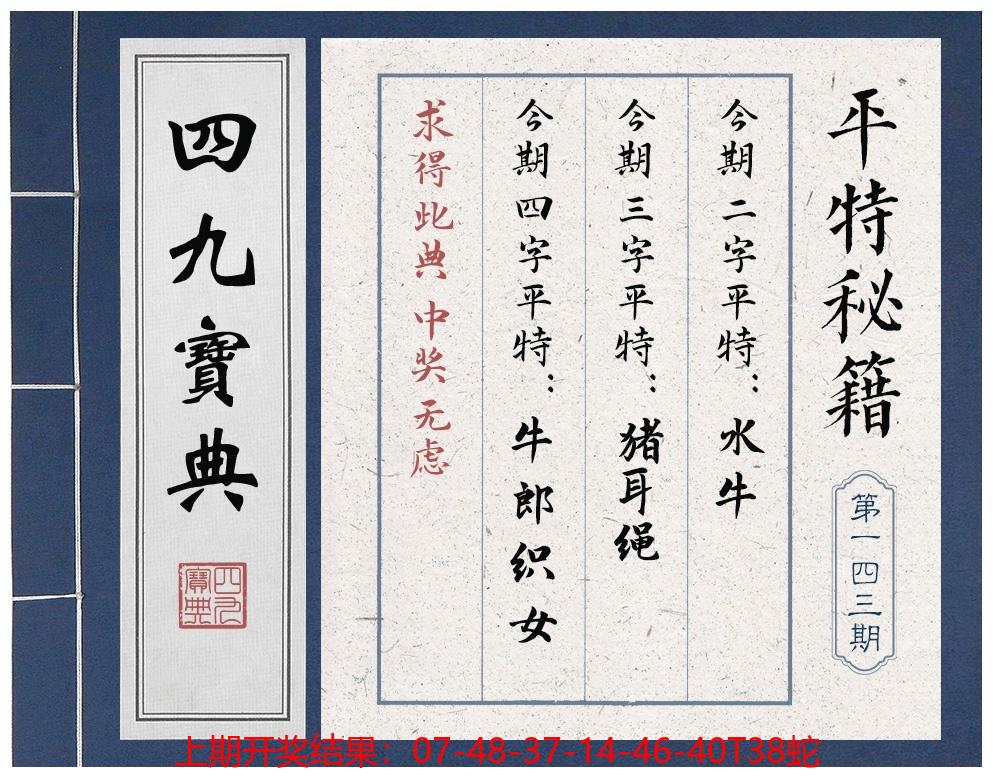 平特秘籍
第一四三期
今期二字平特：水牛
今期三字平特：猪耳绳
今期四字平特：牛郎织女
求得此典 中奖无虑
四九寶典
四九寶典
上期开奖结果：07-48-37-14-46-40T38蛇